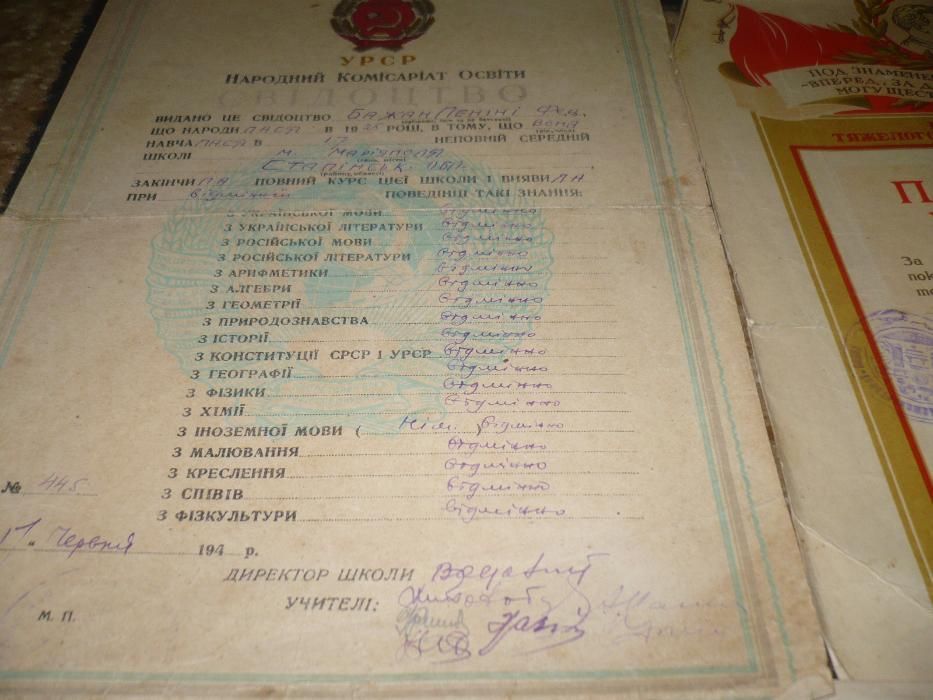 УРСР
НАРОДНИЙ КОМІСАРІАТ ОСВІТИ
СВІДОЦТВО
ВИДАНО ЦЕ СВІДОЦТВО Бажан Леніні
ЩО НАРОДИЛАСЯ В 19 РОЦІ, В ТОМУ, ЩО вона
НАВЧАЛАСЯ В 17 НЕПОВНІЙ СЕРЕДНІЙ
ШКОЛІ м. Маріуполя
Сталінськ. обл.
ЗАКІНЧИЛА ПОВНИЙ КУРС ЦІЄЇ ШКОЛИ І ВИЯВИЛА
ПРИ відмінній ПОВЕДІНЦІ ТАКІ ЗНАННЯ:
З УКРАЇНСЬКОЇ МОВИ відмінно
З УКРАЇНСЬКОЇ ЛІТЕРАТУРИ відмінно
З РОСІЙСЬКОЇ МОВИ відмінно
З РОСІЙСЬКОЇ ЛІТЕРАТУРИ відмінно
З АРИФМЕТИКИ відмінно
З АЛГЕБРИ відмінно
З ГЕОМЕТРІЇ відмінно
З ПРИРОДОЗНАВСТВА відмінно
З ІСТОРІЇ відмінно
З КОНСТИТУЦІЇ СРСР І УРСР відмінно
З ГЕОГРАФІЇ відмінно
З ФІЗИКИ відмінно
З ХІМІЇ відмінно
З ІНОЗЕМНОЇ МОВИ ( Нім. відмінно
З МАЛЮВАННЯ відмінно
З КРЕСЛЕННЯ відмінно
З СПІВІВ відмінно
З ФІЗКУЛЬТУРИ відмінно
№ 445
Червня 194 р.
ДИРЕКТОР ШКОЛИ
УЧИТЕЛІ:
М. П.
ПОД ЗНАМЕНЕ
ВПЕРЕД, ЗА
МОГУЩЕСТ
ТЯЖЕЛОГ
П
За
пок